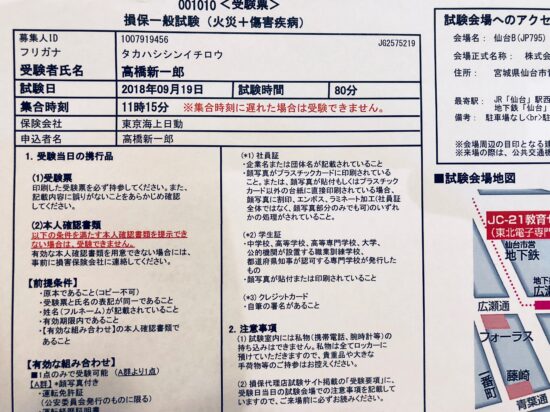 001010 <受験票>
損保一般試験(火災+傷害疾病)
募集人ID 1007919456 JG2575219
フリガナ タカハシシンイチロウ
受験者氏名 高橋新一郎
試験日 2018年09月19日 試験時間 80分
集合時刻 11時15分 ※集合時刻に遅れた場合は受験できません。
保険会社 東京海上日動
申込者名 高橋新一郎
1. 受験当日の携行品
(1)受験票
印刷した受験票を必ず持参してください。また、
記載内容に誤りがないことをあらかじめ確認
してください。
(2)本人確認書類
以下の条件を満たす本人確認書類を提示でき
ない場合は、受験できません。
有効な本人確認書類を用意できない場合には、
事前に損害保険会社に連絡してください。
【前提条件】
・原本であること(コピー不可)
・受験票と氏名の表記が同一であること
・姓名(フルネーム)が記載されていること
・有効期限内であること
・【有効な組み合わせ】の本人確認書類で
あること
【有効な組み合わせ】
■1点のみで受験可能 (A群より1点)
【A群】*顔写真付き
・運転免許証
(公安委員会発行のものに限る)
・運転経歴証明書
(*1)社員証
・企業名または団体名が記載されていること
・顔写真がプラスチックカードに印刷されている
こと。または、顔写真が貼付もしくはプラスチック
カード以外の台紙に直接印刷されている場合、
顔写真に割印、エンボス、ラミネート加工(社員証
全体ではなく、顔写真部分のみでも可)のいずれ
かの処理がされていること。
(*2)学生証
・中学校、高等学校、高等専門学校、大学、
公的機関が設置する職業訓練学校、
都道府県知事が認可する専門学校が発行した
もの
・顔写真が貼付または印刷されていること
(*3)クレジットカード
・自筆の署名があること
2. 注意事項
(1)試験室内には私物(携帯電話、腕時計等)の
持ち込みはできません。私物は全てロッカーに
預けていただきますので、貴重品や大きな
手荷物等のご持参はお控えください。
(2)損保代理店試験サイト掲載の「受験要項」に、
受験日当日の試験会場での注意事項を記載して
いますので、ご来場前に必ずお読みください。
試験会場へのアクセ
会場名: 仙台B(JP795)
会場正式名称: 株式会
住所: 宮城県仙台市青
最寄駅: JR「仙台」駅西
地下鉄「仙台
備考: 駐車場なし<br>駐
※会場周辺の目印となる建
※来場の際は、公共交通機
■試験会場地図
JC-21教育セ
(東北電子専門
仙台市営
地下鉄
地下
広瀬
広瀬通
フォーラス
一番町
藤崎
青葉通